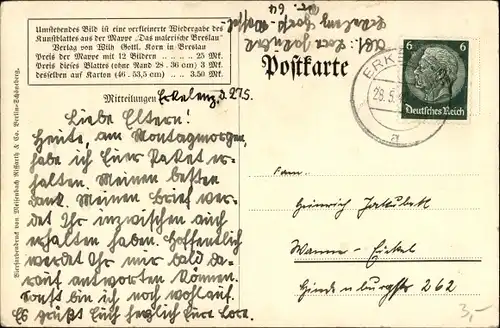 Umstehendes Bild ist eine verkleinerte Wiedergabe des
Kunstblattes aus der Mappe „Das malerische Breslau"
Verlag von Wilh. Gottl. Korn in Breslau
Preis der Mappe mit 12 Bildern . . . . . 25 Mk.
Preis dieses Blattes (ohne Rand 28 . 36 cm) 3 Mk.
desselben auf Karton (46 . 53,5 cm) . . . 3.50 Mk.
Vierfarbendruck von Meisenbach Riffarth & Co. Berlin-Schöneberg.
Postkarte
6 6
Deutsches Reich
ERK
29.5.
a
Mitteilungen Erkelenz, d. 27.5.
Liebe Eltern!
Heute, am Montagmorgen,
habe ich Euer Paket er-
halten. Meinen besten
Dank. Meinen Brief wer-
det Ihr inzwischen auch
erhalten haben. Hoffentlich
werdet Ihr mir bald da-
rauf antworten können.
Sonst bin ich noch wohlauf.
Es grüßt Euch herzlich Eure Lore.
Abs.: Lore
Erkelenz
Nr. 64
Fam.
Heinrich
Wanne-Eickel
Hindenburgstr 262
3,-